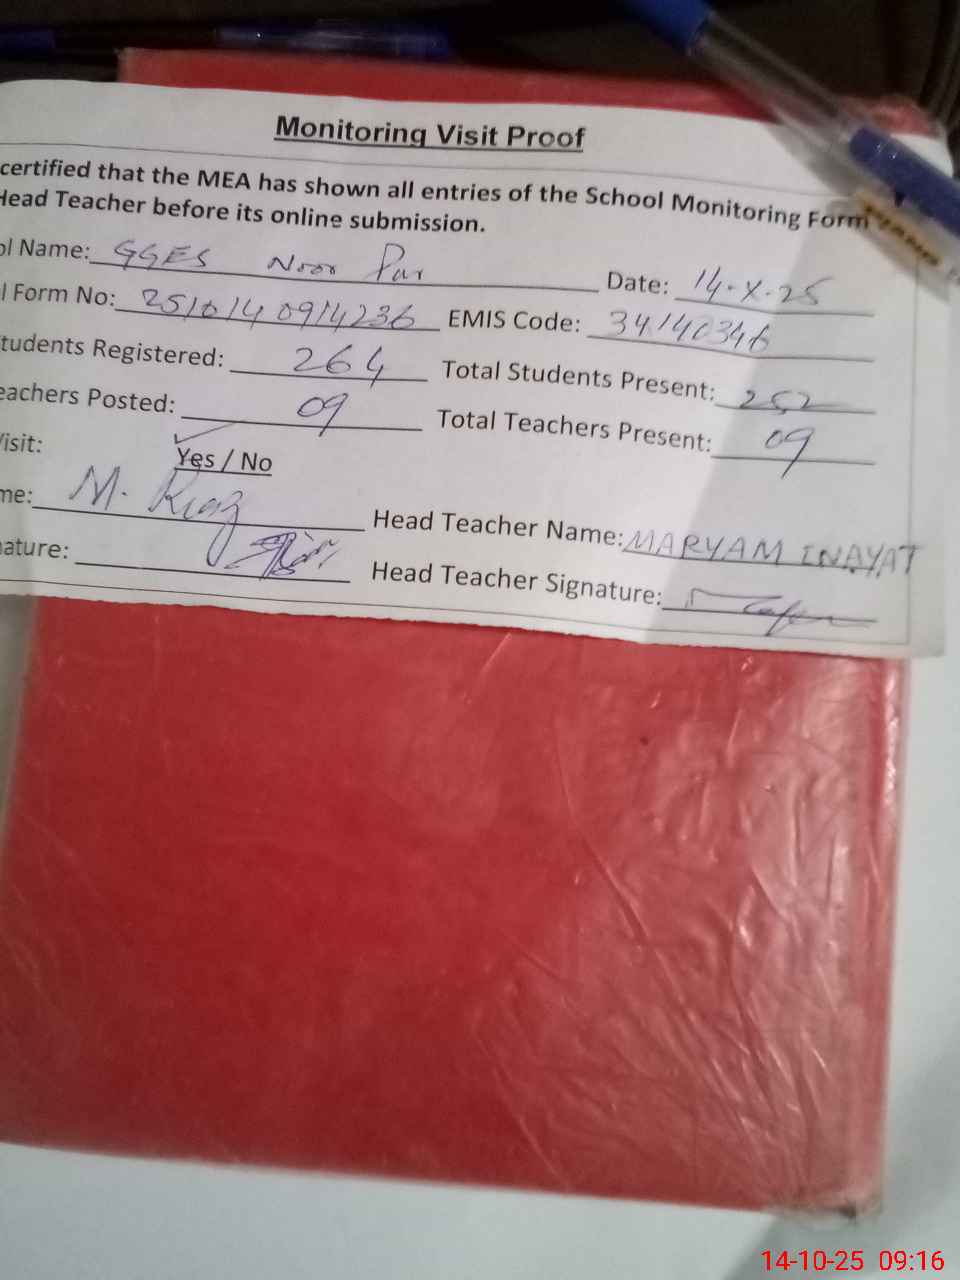 Monitoring Visit Proof
certified that the MEA has shown all entries of the School Monitoring Form
Head Teacher before its online submission.
ol Name: GGES Noor Pur Date: 14-X-25
l Form No: 2510140914236 EMIS Code: 34140346
tudents Registered: 264 Total Students Present: 252
eachers Posted: 09 Total Teachers Present: 09
isit: Yes / No
me: M. Riaz Head Teacher Name: MARYAM INAYAT
ature: Head Teacher Signature:
14-10-25 09:16